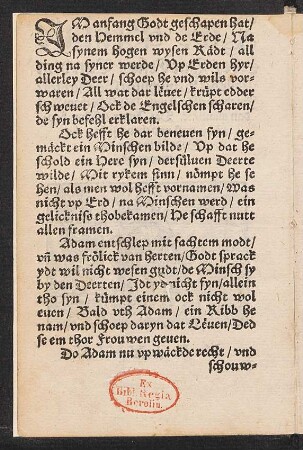 IM anfang Godt geschapen hat/
den Hemmel vnd de Erde/ Na
synem hogen wysen Rådt/ all
ding na syner werde/ Vp Erden hyr/
allerley Deer/ schoep he vnd wils vor-
waren/ All wat dar lëuet/ krüpt edder
schweuet/ Ock de Engelschen scharen/
de syn befehl erklaren.
Ock hefft he dar beneuen fyn/ ge-
mäckt ein Minschen bilde/ Vp dat he
schold ein Here syn/ dersüluen Deerte
wilde/ Mit rykem sinn/ nömpt he se
hen/ als men wol hefft vornamen/ Was
nicht vp Erd/ na Minschen werd/ ein
gelickniss thobekamen/ He schafft nutt
allen framen.
Adam entschlep mit sachtem modt/
vñ was frölick van herten/ Godt sprack
ydt wil nicht wesen gudt/ de Minsch sy
by den Deerten/ Idt ys nicht fyn/ allein
tho syn/ kümpt einem ock nicht wol
euen/ Bald vth Adam/ ein Ribb he
nam/ vnd schoep daryn dat Lëuen/ Ded
se em thor Frouwen geuen.
Do Adam nu vpwäckde recht/ vnd
schouw-
Ex
Bibl. Regia
Berolin.